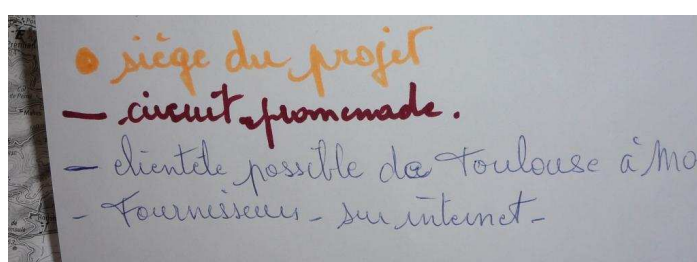 • siège du projet
— circuit promenade.
— clientele possible de Toulouse à Mo
- Fournisseurs - sur internet -